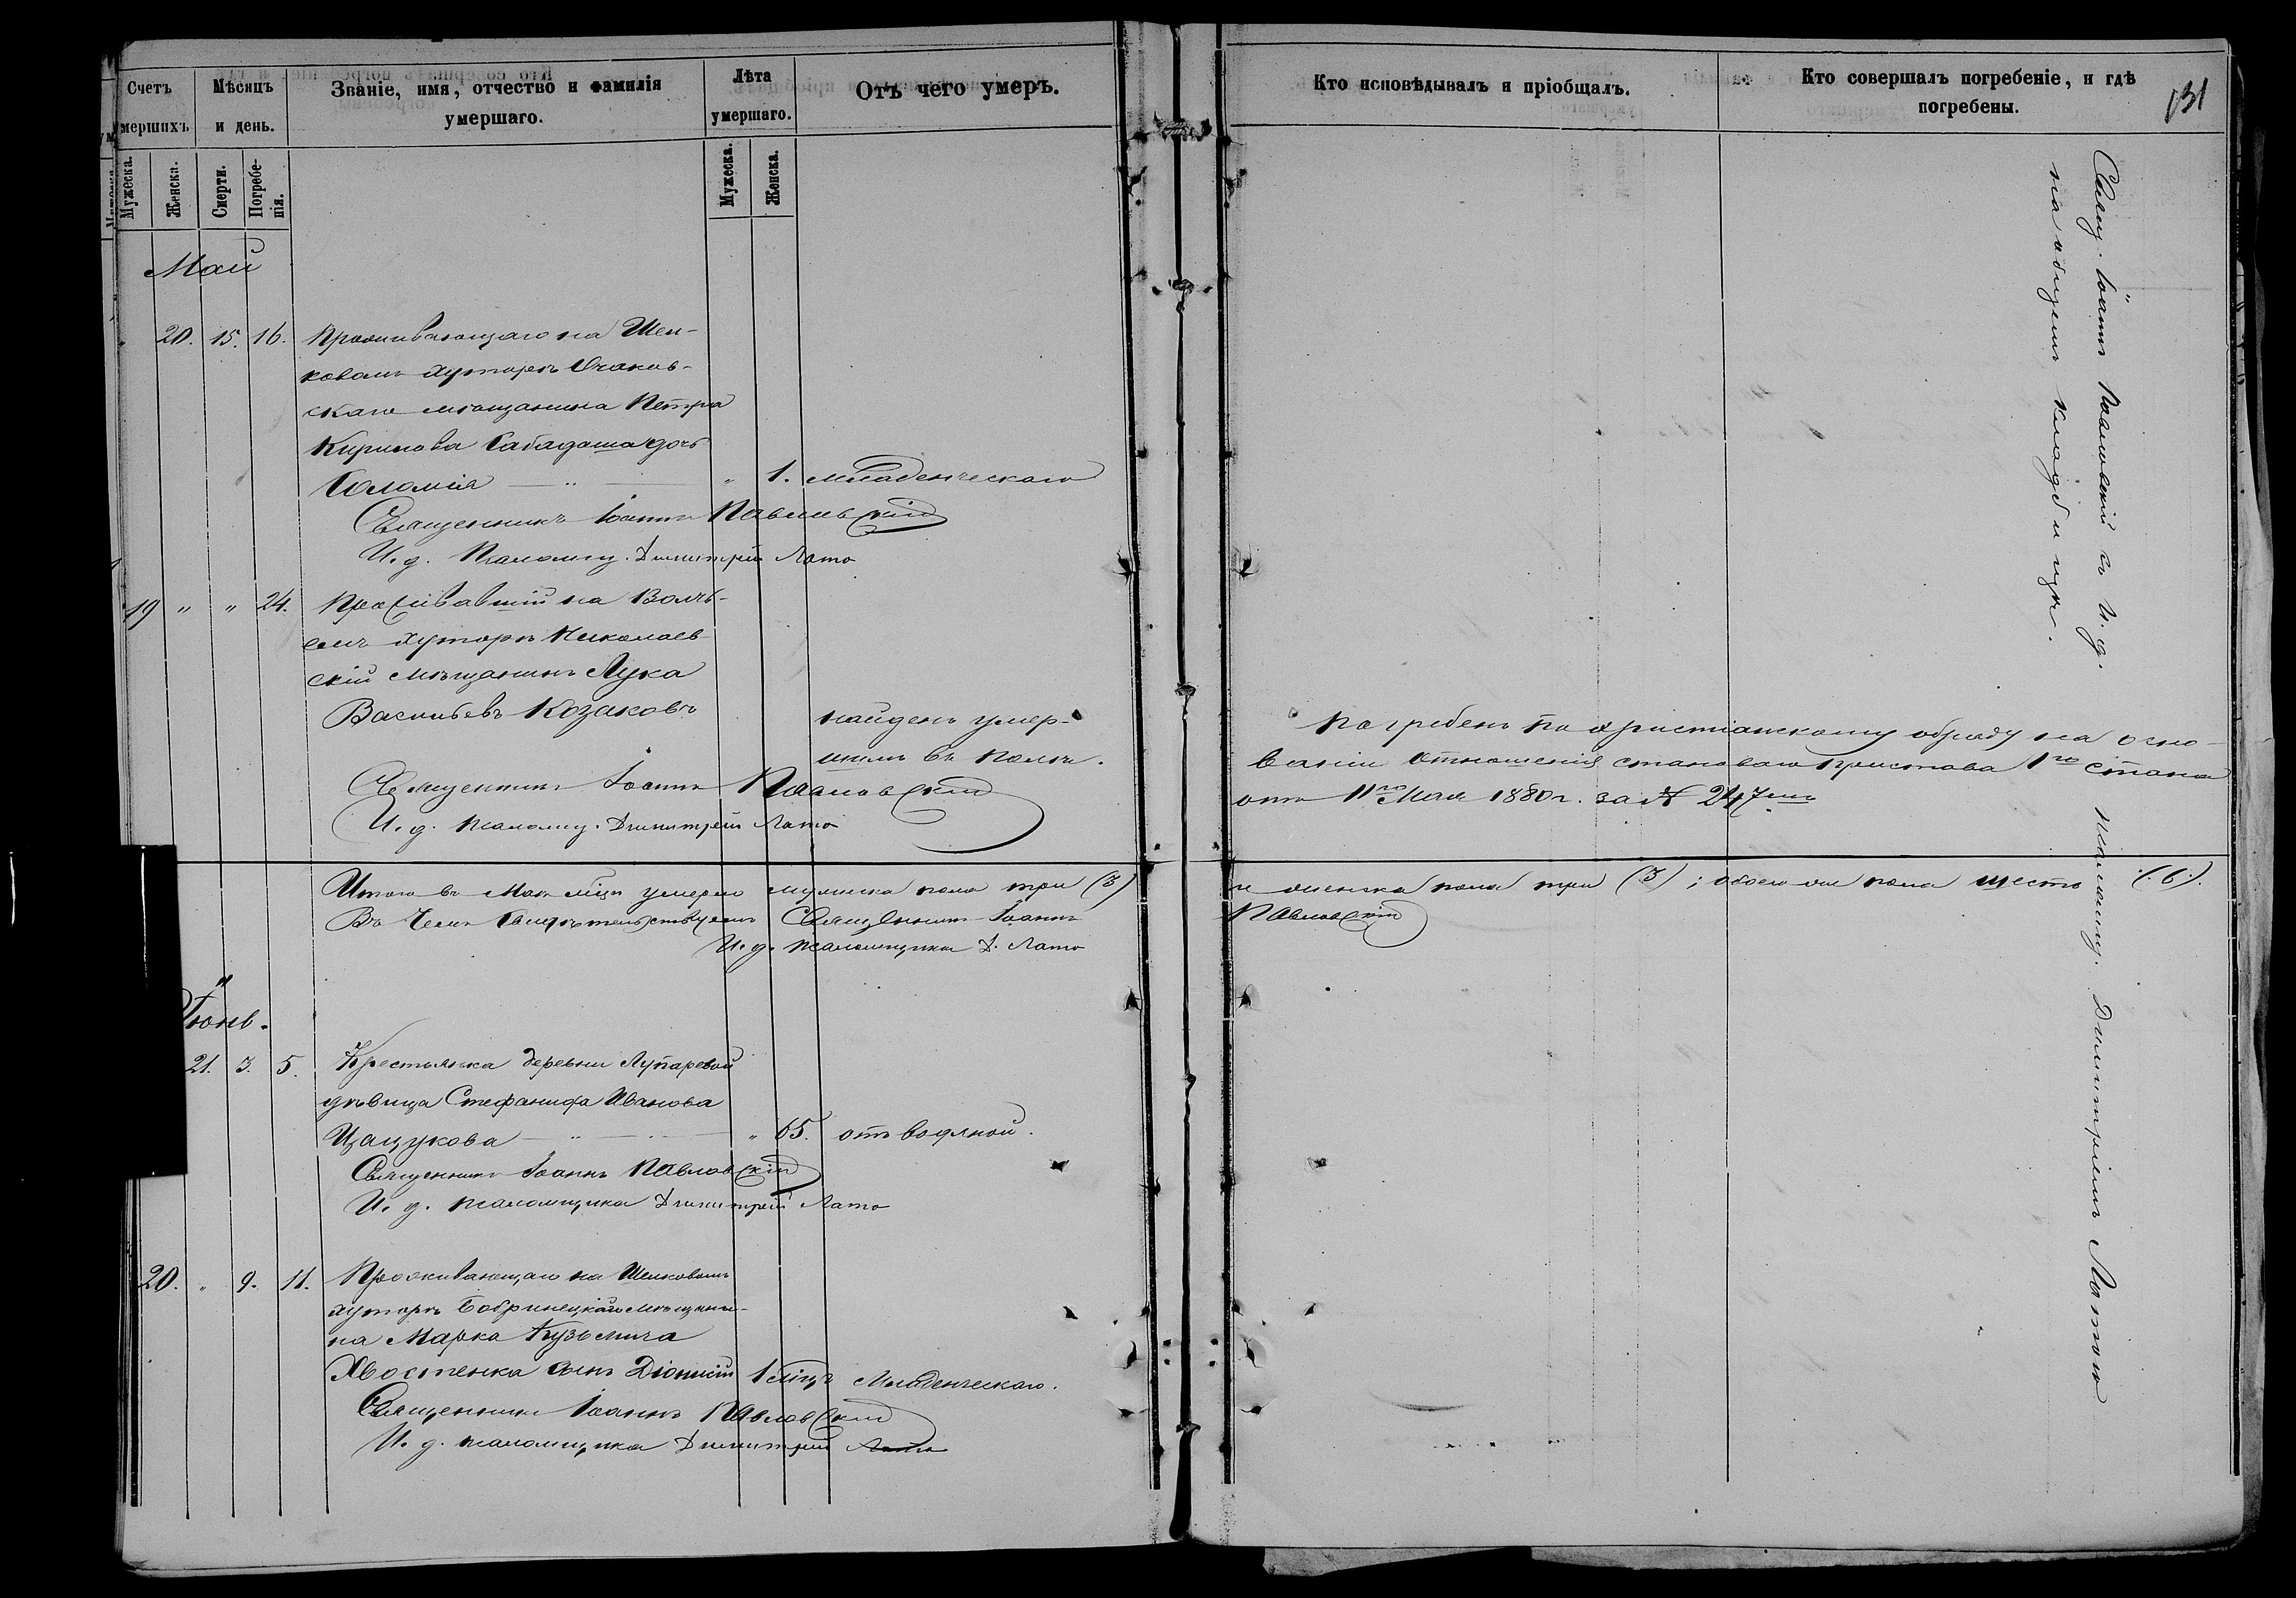 Счетъ умершихъ.
Мѣсяцъ и день.
Званіе, имя, отчество и фамилія умершаго.
Лѣта умершаго.
Отъ чего умеръ.
Кто исповѣдывалъ и пріобщалъ.
Кто совершалъ погребеніе, и гдѣ погребены.
131
Мужеска.
Женска.
Смерти.
Погребенія.
Мужеска.
Женска.
Май
" 20. 15. 16. Проживающаго на Шел-
ковомъ хуторѣ Очаков-
скаго мѣщанина Петра
Кирилова Сабадаша дочь
Соломія " 1. младенческаго
Священникъ Іоаннъ Павловскій
И. д. Псаломщ. Димитрій Лато
19 " " 24. Проживавшій на Волчь-
емъ хуторѣ Николаев-
скій мѣщанинъ Лука
Васильевъ Козаковъ
найденъ умер-
шимъ въ полѣ.
Погребенъ по христіанскому обряду на осно-
ваніи отношенія становаго пристава 1го стана
отъ 11го Мая 1880 г. за № 247мъ
Священникъ Іоаннъ Павловскій
И. д. псаломщ. Димитрій Лато
Итого въ Маѣ мцѣ умерло мужеска пола три (3) и женска пола три (3); обоего же пола шесть (:6:).
Въ чемъ свидѣтельствуемъ Священникъ Іоаннъ Павловскій
И. д. псаломщика Д. Лато
Іюнь.
21. 3. 5. Крестьянка деревни Лупаревой
дѣвица Стефанида Иванова
Цацукова " 65. отъ водяной.
Священникъ Іоаннъ Павловскій
И. д. псаломщика Димитрій Лато
20. " 9. 11. Проживающаго на Шелковомъ
хуторѣ Бобринецкаго мѣщани-
на Марка Кузьмича
Хвостенка сынъ Діонисій 1 мцъ Младенческаго.
Священникъ Іоаннъ Павловскій
И. д. псаломщика Димитрій Лато
Свящ. Іоаннъ Павловскій съ И. д. псаломщ. Димитріемъ Латою
на общемъ кладбищѣ.